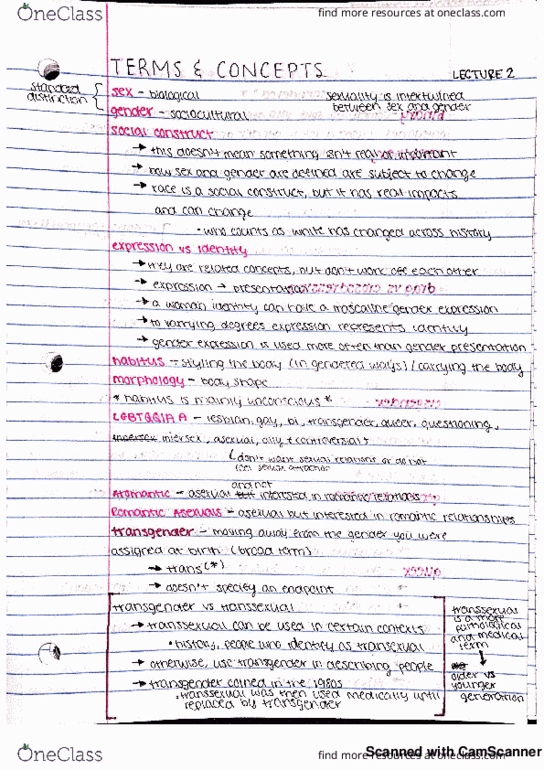 OneClass
find more resources at oneclass.com
TERMS & CONCEPTS
LECTURE 2
standard distinction
sex - biological
sexuality is intertwined
between sex and gender
gender - sociocultural
social construct
→ this doesn't mean something isn't real or important
→ how sex and gender are defined are subject to change
→ race is a social construct, but it has real impacts
and can change
• who counts as white has changed across history
expression vs identity
→ they are related concepts, but don't work off each other
→ expression → presentation
→ a woman identity can have a masculine gender expression
→ to varying degrees expression represents identity
→ gender expression is used more often than gender presentation
habitus - styling the body (in gendered ways) / carrying the body
morphology - body shape
* habitus is mainly unconscious *
LGBTQQIAA - lesbian, gay, bi, transgender, queer, questioning,
intersex, asexual, ally * controversial *
(don't want sexual relations or do not
feel sexual attraction
and not
Aromantic - asexual but interested in romantic relations
Romantic Asexuals - asexual but interested in romantic relationships
transgender - moving away from the gender you were
assigned at birth (broad term)
→ trans(*)
→ doesn't specify an endpoint
transgender vs transsexual
→ transsexual can be used in certain contexts
• history, people who identify as transexual
→ otherwise, use transgender in describing people
→ transgender coined in the 1980s
• transsexual was then used medically until
replaced by transgender
transsexual
is a more
pathological
and medical
term
older vs
younger
generation
OneClass
find more resources at oneclass.com
Scanned with CamScanner